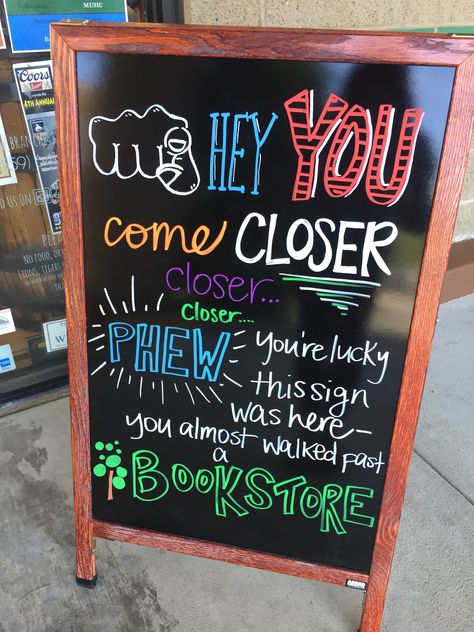 MUSIC
Coors
4TH ANNUAL
HEY YOU
come CLOSER
closer...
closer....
PHEW
you're lucky
this sign
was here-
you almost walked past
a
BOOKSTORE